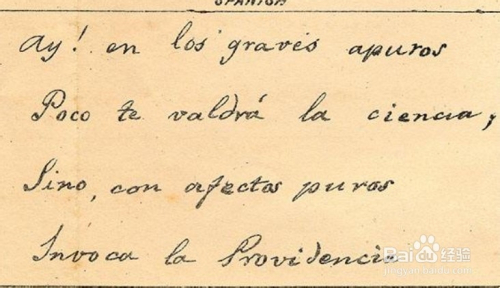 SPANISH
Ay! en los graves apuros
Poco te valdrá la ciencia,
Sino, con afectos puros
Invoca la Providencia
Baidu经验
jingyan.baidu.com